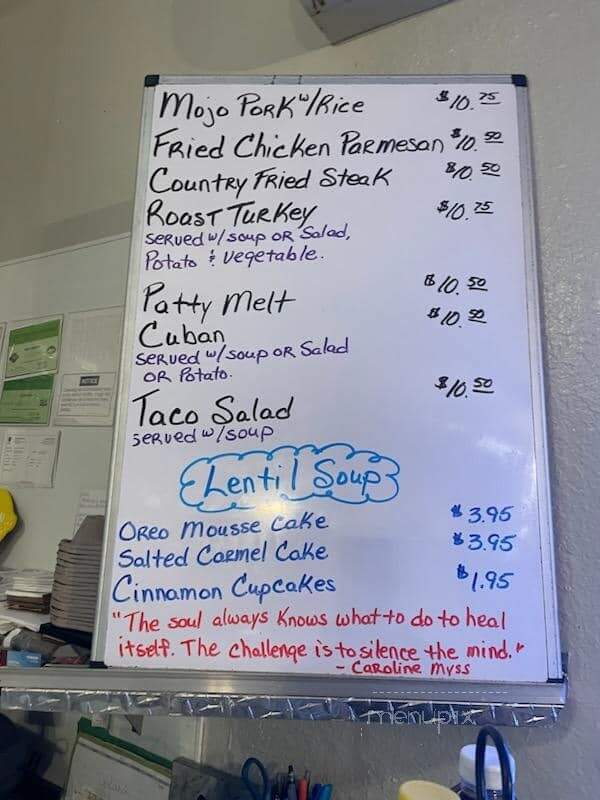 Mojo Pork w/Rice $10.75
Fried Chicken Parmesan $10.50
Country Fried Steak $10.50
Roast Turkey $10.75
Served w/soup or Salad,
Potato & Vegetable.
Patty Melt $10.50
Cuban $10.50
Served w/soup or Salad
or Potato.
Taco Salad $10.50
Served w/soup
Lentil Soup
Oreo Mousse Cake $3.95
Salted Carmel Cake $3.95
Cinnamon Cupcakes $1.95
"The soul always knows what to do to heal
itself. The challenge is to silence the mind."
- Caroline Myss
NOTICE
menupix